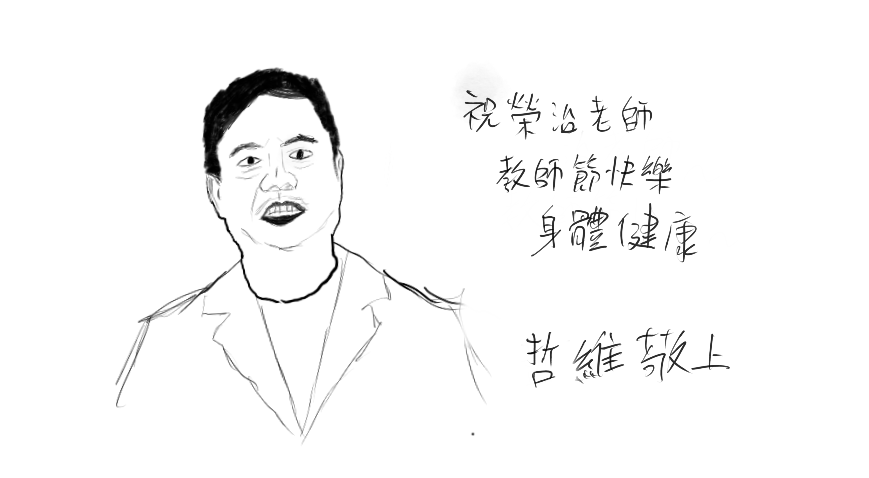 祝榮治老師
教師節快樂
身體健康
哲維敬上